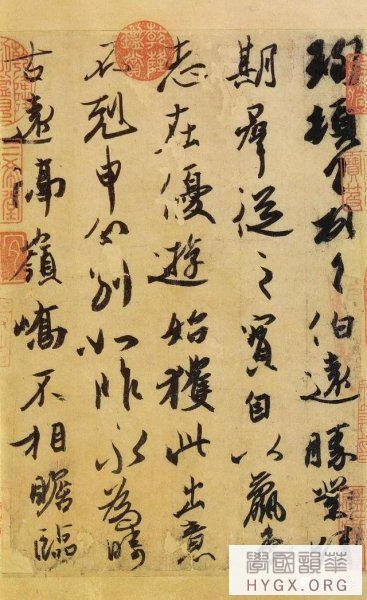 珣頓首頓首伯遠勝業情
期羣從之寶自以羸患
志在優遊始獲此出意
不剋申分別如昨永為疇
古遠隔嶺嶠不相瞻臨
乾隆鑑賞
學國韻華
HYGX.ORG